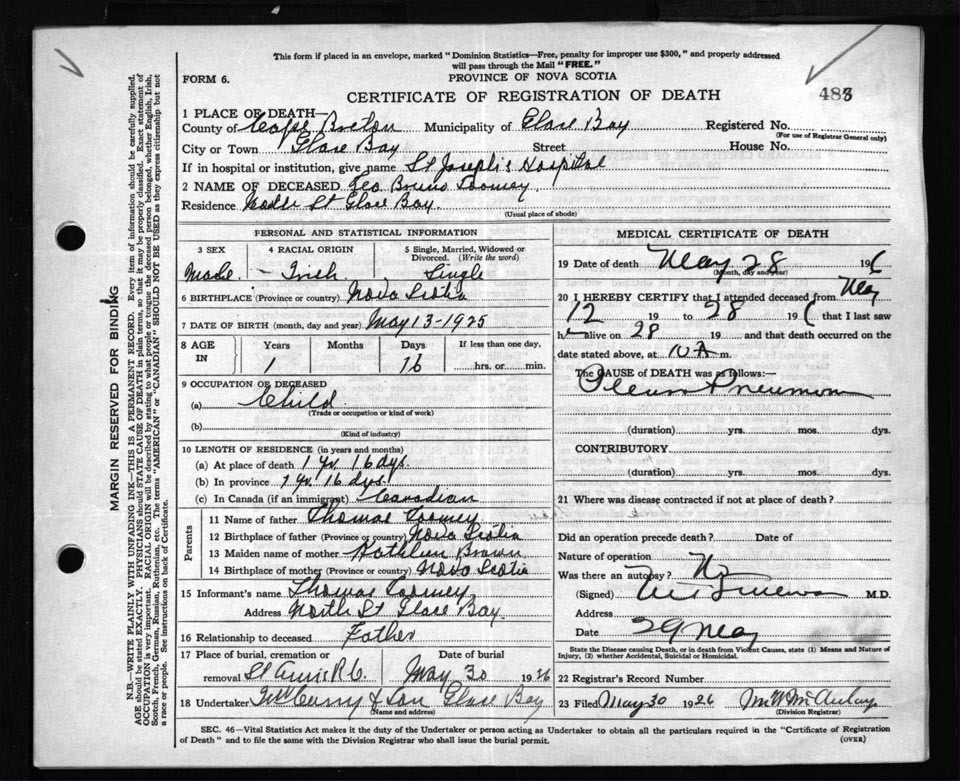 This form if placed in an envelope, marked "Dominion Statistics—Free, penalty for improper use $300," and properly addressed
will pass through the Mail "FREE."
FORM 6.
PROVINCE OF NOVA SCOTIA
CERTIFICATE OF REGISTRATION OF DEATH
488
1 PLACE OF DEATH—
County of Cape Breton Municipality of Glace Bay Registered No.
(For use of Registrar General only)
City or Town Glace Bay Street House No.
If in hospital or institution, give name St Joseph's Hospital
2 NAME OF DECEASED Geo Bruno Toomey
Residence North St Glace Bay.
(Usual place of abode)
PERSONAL AND STATISTICAL INFORMATION
3 SEX 4 RACIAL ORIGIN 5 Single, Married, Widowed or
Divorced. (Write the word)
Male - Irish Single
6 BIRTHPLACE (Province or country) Nova Scotia
7 DATE OF BIRTH (month, day and year) May 13-1925
8 AGE IN Years Months Days If less than one day,
1 16 hrs. or min.
9 OCCUPATION OF DECEASED
(a) Child
(Trade or occupation or kind of work)
(b)
(Kind of industry)
10 LENGTH OF RESIDENCE (in years and months)
(a) At place of death 1 yr. 16 dys.
(b) In province 1 yr. 16 dys.
(c) In Canada (if an immigrant) Canadian
Parents
11 Name of father Thomas Toomey
12 Birthplace of father (Province or country) Nova Scotia
13 Maiden name of mother Kathleen Brown
14 Birthplace of mother (Province or country) Nova Scotia
15 Informant's name Thomas Toomey
Address North St Glace Bay.
16 Relationship to deceased Father
17 Place of burial, cremation or Date of burial
removal St Anns R.C. May 30 1926
18 Undertaker McCurry & Son Glace Bay
(Name and address)
MEDICAL CERTIFICATE OF DEATH
19 Date of death May 28 19 6
(Month, day and year)
20 I HEREBY CERTIFY that I attended deceased from May
12 19 to 28 19 6 that I last saw
h alive on 28 19 and that death occurred on the
date stated above, at 10 A m.
The CAUSE of DEATH was as follows:—
Pneumon
(duration) yrs. mos. dys.
CONTRIBUTORY.
(duration) yrs. mos. dys.
21 Where was disease contracted if not at place of death?
Did an operation precede death? Date of
Nature of operation
Was there an autopsy? No
(Signed) M.D.
Address
Date 29 May
State the Disease causing Death, or in death from Violent Causes, state (1) Means and Nature of
Injury, (2) whether Accidental, Suicidal or Homicidal.
22 Registrar's Record Number
23 Filed May 30 1926 M W McAulay
(Division Registrar)
SEC. 46—Vital Statistics Act makes it the duty of the Undertaker or person acting as Undertaker to obtain all the particulars required in the "Certificate of Registration
of Death" and to file the same with the Division Registrar who shall issue the burial permit.
(OVER)
MARGIN RESERVED FOR BINDING
N.B.—WRITE PLAINLY WITH UNFADING INK—THIS IS A PERMANENT RECORD. Every item of information should be carefully supplied.
AGE should be stated EXACTLY. PHYSICIANS should STATE CAUSE OF DEATH in plain terms, so that it may be properly classified. Exact statement of
OCCUPATION is very important. RACIAL ORIGIN will be described by stating to what people or tongue the deceased person belonged, whether English, Irish,
Scotch, French, German, Russian, Ruthenian, etc. The terms "AMERICAN" or "CANADIAN" SHOULD NOT BE USED as they express citizenship but not
a race or people. See instructions on back of Certificate.